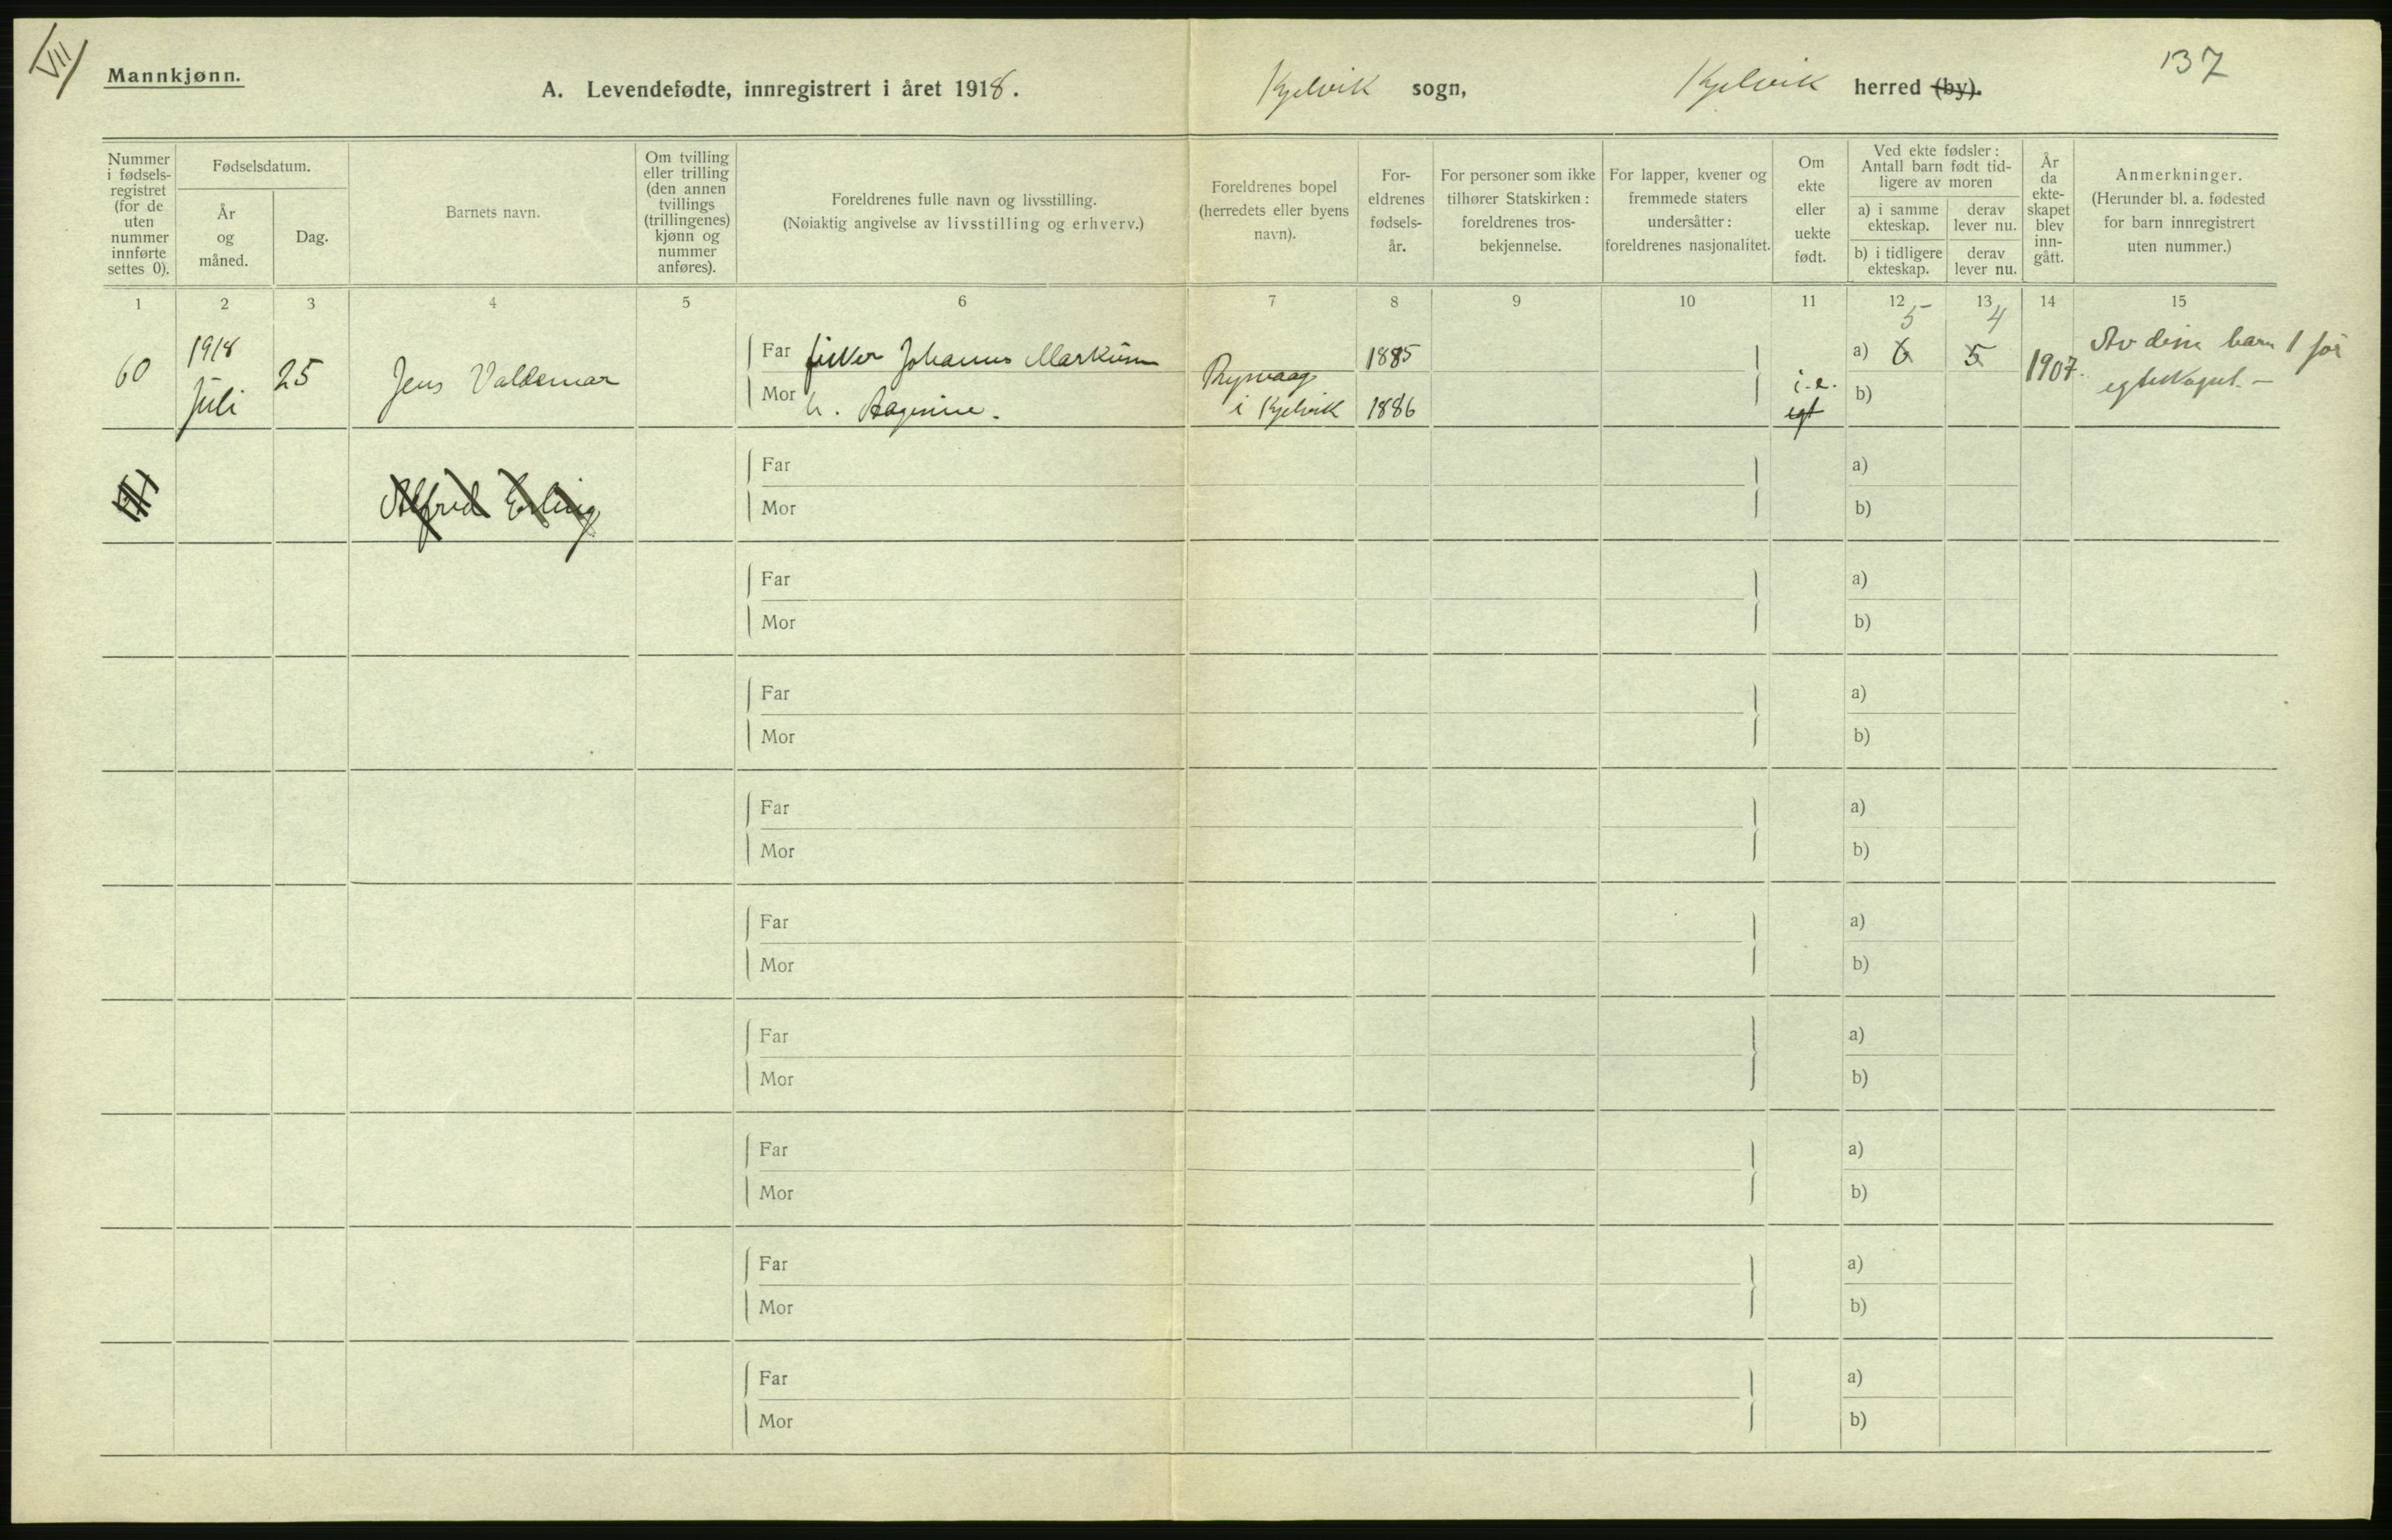 VII
137
Mannkjønn.
A. Levendefødte, innregistrert i året 1918.
Kjelvik sogn,
Kjelvik herred (by).
Nummer i fødsels-registret (for de uten nummer innførte settes 0).
Fødselsdatum.
År og måned.
Dag.
Barnets navn.
Om tvilling eller trilling (den annen tvillings (trillingenes) kjønn og nummer anføres).
Foreldrenes fulle navn og livsstilling.
(Nøiaktig angivelse av livsstilling og erhverv.)
Foreldrenes bopel (herredets eller byens navn).
For-eldrenes fødsels-år.
For personer som ikke tilhører Statskirken: foreldrenes tros-bekjennelse.
For lapper, kvener og fremmede staters undersåtter: foreldrenes nasjonalitet.
Om ekte eller uekte født.
Ved ekte fødsler:
Antall barn født tid-ligere av moren
a) i samme ekteskap.
derav lever nu.
b) i tidligere ekteskap.
derav lever nu.
År da ekte-skapet blev inn-gått.
Anmerkninger.
(Herunder bl. a. fødested for barn innregistrert uten nummer.)
1 2 3 4 5 6 7 8 9 10 11 12 13 14 15
60
1918
Juli
25
Jens Valdemar
Far fisker Johannes
Mor h.
i Kjelvik
1885
1886
i.e.
egt
5 4
a) 6 5
b)
1907.
Av disse barn 1 før
egteskapet. –
Alfred Erling
Far
Mor
a)
b)
Far
Mor
a)
b)
Far
Mor
a)
b)
Far
Mor
a)
b)
Far
Mor
a)
b)
Far
Mor
a)
b)
Far
Mor
a)
b)
Far
Mor
a)
b)
Far
Mor
a)
b)